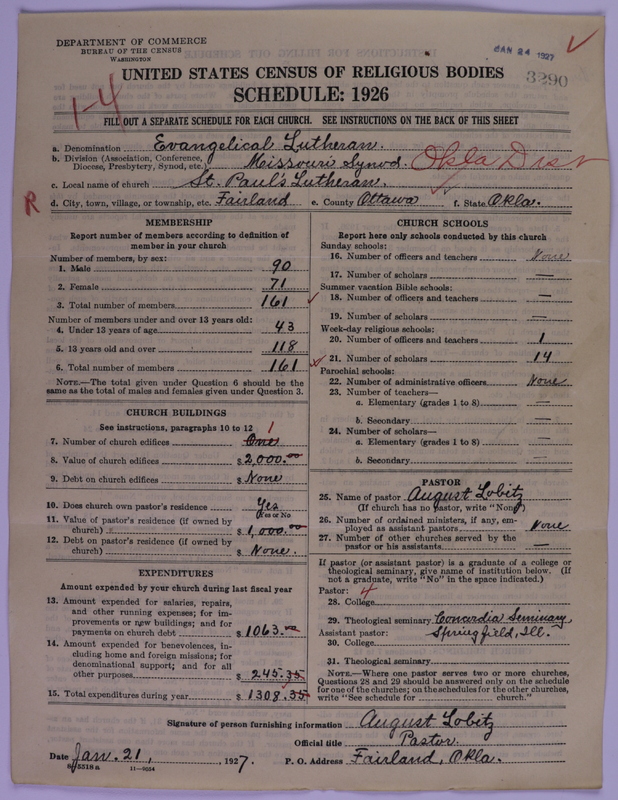 DEPARTMENT OF COMMERCE
BUREAU OF THE CENSUS
WASHINGTON
JAN 24 1927
3290
1-4
UNITED STATES CENSUS OF RELIGIOUS BODIES
SCHEDULE: 1926
FILL OUT A SEPARATE SCHEDULE FOR EACH CHURCH. SEE INSTRUCTIONS ON THE BACK OF THIS SHEET
a. Denomination Evangelical Lutheran.
b. Division (Association, Conference, Diocese, Presbytery, Synod, etc.) Missouri Synod. Okla Dist
c. Local name of church St. Paul's Lutheran.
R
d. City, town, village, or township, etc. Fairland e. County Ottawa f. State Okla.
MEMBERSHIP
Report number of members according to definition of
member in your church
Number of members, by sex:
1. Male 90
2. Female 71
3. Total number of members 161
Number of members under and over 13 years old:
4. Under 13 years of age 43
5. 13 years old and over 118
6. Total number of members 161
NOTE.—The total given under Question 6 should be the
same as the total of males and females given under Question 3.
CHURCH BUILDINGS
See instructions, paragraphs 10 to 12
7. Number of church edifices One 1
8. Value of church edifices $ 2,000.00
9. Debt on church edifices $ None
10. Does church own pastor's residence Yes
(Yes or No
11. Value of pastor's residence (if owned by
church) $ 1,000.00
12. Debt on pastor's residence (if owned by
church) $ None.
EXPENDITURES
Amount expended by your church during last fiscal year
13. Amount expended for salaries, repairs,
and other running expenses; for im-
provements or new buildings; and for
payments on church debt $ 1063.00
14. Amount expended for benevolences, in-
cluding home and foreign missions; for
denominational support; and for all
other purposes $ 245.35
15. Total expenditures during year $ 1308.35
CHURCH SCHOOLS
Report here only schools conducted by this church
Sunday schools:
16. Number of officers and teachers None
17. Number of scholars —
Summer vacation Bible schools:
18. Number of officers and teachers —
19. Number of scholars —
Week-day religious schools:
20. Number of officers and teachers 1
21. Number of scholars 14
Parochial schools:
22. Number of administrative officers None
23. Number of teachers—
a. Elementary (grades 1 to 8) —
b. Secondary —
24. Number of scholars—
a. Elementary (grades 1 to 8) —
b. Secondary —
PASTOR
25. Name of pastor August Lobitz
(If church has no pastor, write "None")
26. Number of ordained ministers, if any, em-
ployed as assistant pastors None
27. Number of other churches served by the
pastor or his assistants —
If pastor (or assistant pastor) is a graduate of a college or
theological seminary, give name of institution below. (If
not a graduate, write "No" in the space indicated.)
Pastor: 4
28. College
29. Theological seminary Concordia Seminary,
Assistant pastor: Springfield, Ill.
30. College
31. Theological seminary
NOTE.—Where one pastor serves two or more churches,
Questions 28 and 29 should be answered only on the schedule
for one of the churches; on the schedules for the other churches,
write "See schedule for church."
Signature of person furnishing information August Lobitz
Official title Pastor.
Date Jan. 21, 1927. P. O. Address Fairland, Okla.
8-5518a 11—9054